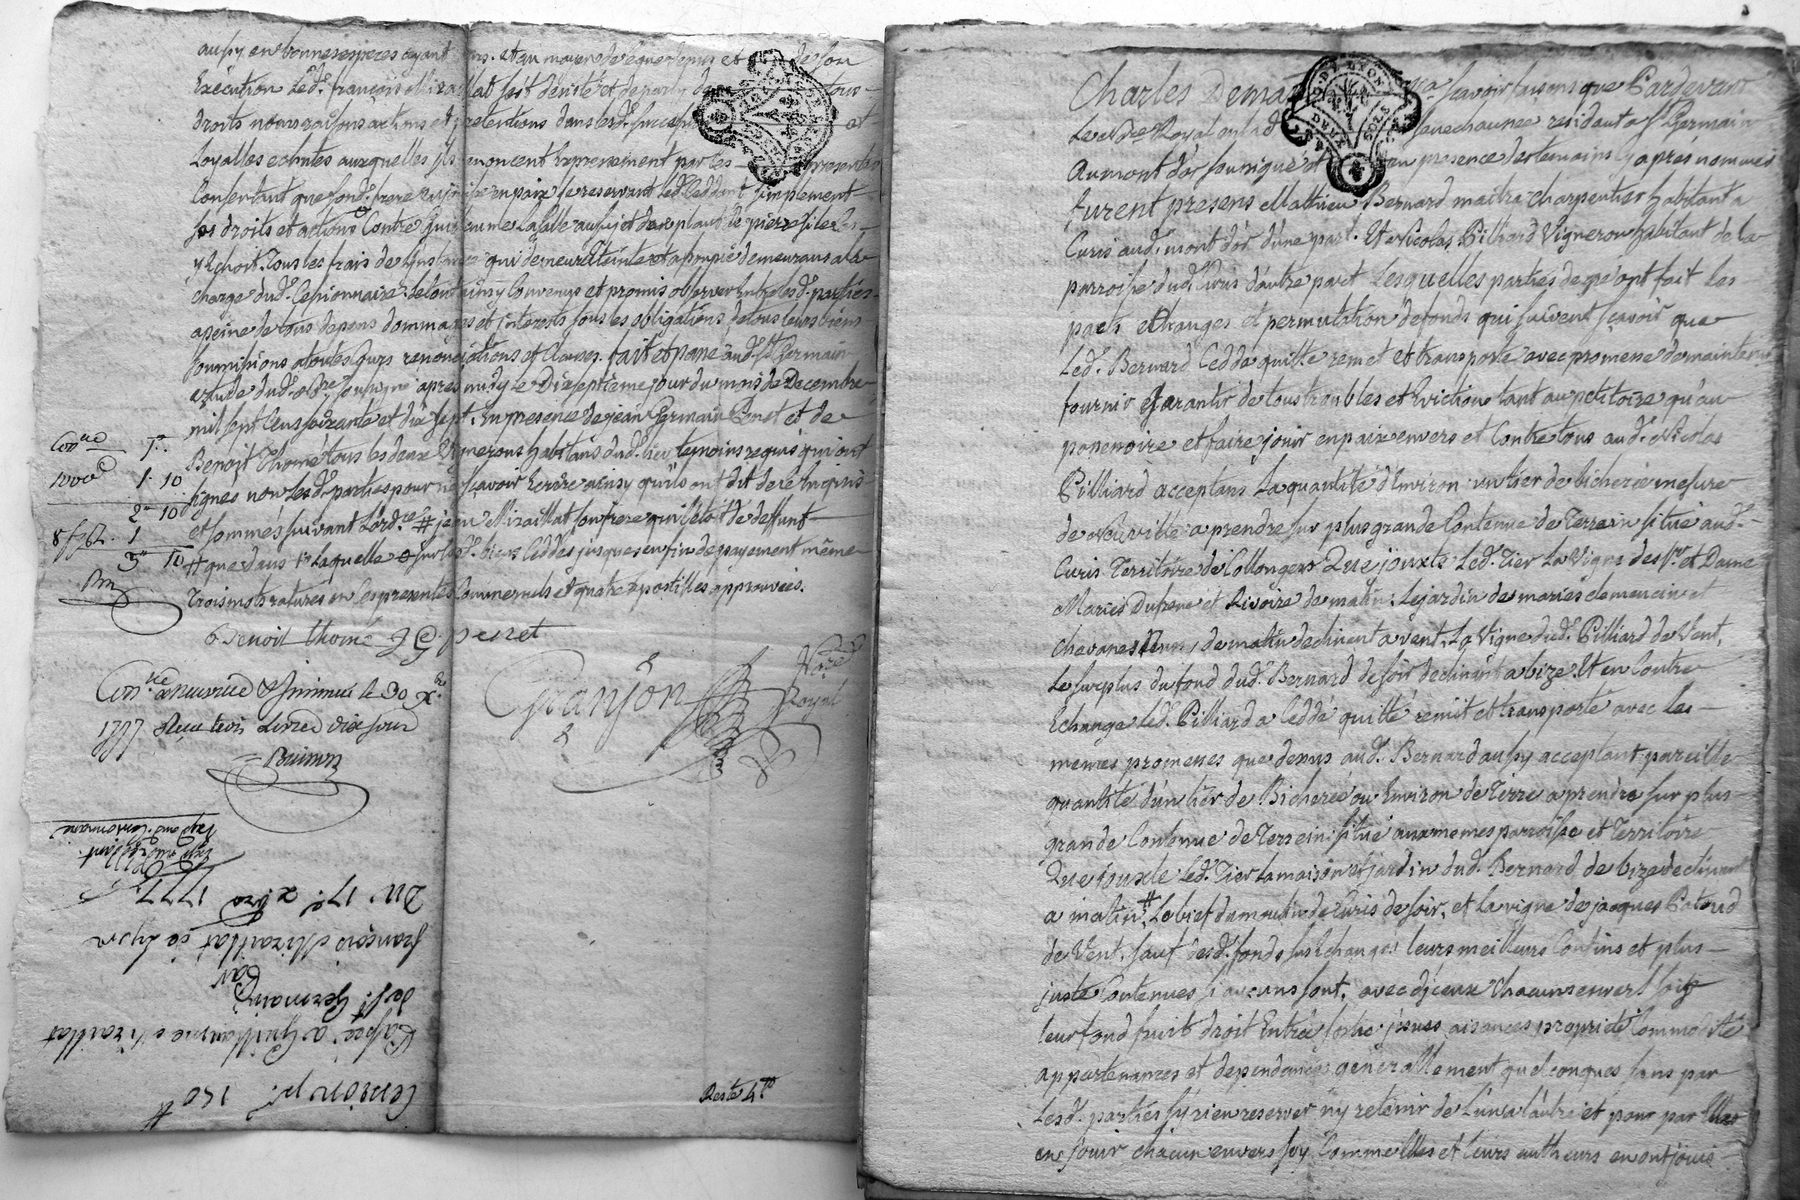 aussy en bonnes especes ayant cours. et au moyen de ce que dessus et de son
Execution Led. françois Miraillat s'est demis et departy de tous
droits noms raisons actions et pretentions dans lesd. succes et
Loyalles echutes auxquelles ils renoncent Expressement par les presentes
Consentant que sond. frere en jouisse en paix se reservant led. Ceddant simplement
ses droits et actions Contre Guillaume Lasalle au sujet
y Echoit. Tous les frais de qui demeure Eteinte et assoupie demeurans a la
charge dud. Cessionnaire. Le tout ainsy Convenus et promis observer Entre lesd. parties
a peine de tous depens dommages et jnterests sous les obligations de tous leurs biens
soumissions a toutes Cours renonciations et Clauses. fait et passé aud. St Germain
Etude dud. Nre soussigné apres midy Le Dixseptieme jour du mois de Decembre
mil sept Cens soixante et dix sept. En presence de jean Germain Perret et de
Benoit Thomé tous les deux Vignerons habitans dud. lieu temoins requis qui ont
signes non Lesd. parties pour ne sçavoir Ecrire ainsy qu'ils ont dit de ce Enquis
et sommés suivant L'ord.ce # jean Miraillat son frere qui dessunt
# que dans laquelle sur les d. biens Ceddes jusques en fin de payement même
Trois mots ratures en Ces presentes Comme nuls et quatre apostilles approuvées.
Con.lle 1.
1000 1. 10
2 10
8 s. p. l. 1
3 10
Benoit thomé J G. perret
Granjon
N.re Royal
Con.lle a neuville & jnsinué le 30 X.bre
1777 Reçu trois Livres dix sous
Cession p.r 150 #
Passée a Guillaume Miraillat
de St. Germain
Par
françois Miraillat de Lyon
Du 17e Xbre
1777
Exp. aud. Ceddant.
Exp. aud. Cessionnaire
Reste 4
Charles Demar sçavoir faisons que Pardevant
Le Nre Royal en lad. senechaussée residant a St Germain
Aumont d'or soussigné et en presence des temoins cy après nommés
furent presens Mathieu Bernard maitre charpentier habitant a
Curis aud. mont d'or d'une part. Et Nicolas Pilliard Vigneron habitant de la
parroisse dud. Curis d'autre part Lesquelles parties de gré ont fait les
pacts Echanges et permutation de fonds qui suivent sçavoir que
Led. Bernard Cedde quitte remet et transporte avec promesse de maintenir
fournir Garantir de tous troubles et Eviction tant au petitoire qu'au
possessoire et faire jouir en paix envers et Contre tous aud. Nicolas
Pilliard acceptant La quantité d'Environ un tier de bicherée mesure
de Neuville a prendre sur plus grande Contenue de Terrein situé aud.
Curis Territoire de Collonges Que jouxte Led. Tier La Vigne des Sr. et Dame
Maries Dufrene et Rivoire de matin: Le jardin de maries clemencin et
chavanes, de matin declinant a vent, La Vigne dud. Pilliard de Vent,
Le surplus du fond dud. Bernard de soir declinant a bize. Et en Contre
Echange Led. Pilliard a Ceddé quitté remit et transporté avec les
memes promesses que dessus aud. Bernard aussy acceptant pareille
quantité d'un tier de Bicherée ou Environ de Terre a prendre sur plus
grande Contenue de Terrein situé aux memes parroisse et Territoire
Que jouxte Led. Tier La maison et jardin dud. Bernard de bize declinant
a matin # Le bief du moulin de Curis de soir, et la vigne de jacques Patoud
de Vent. sauf desd. fonds sus Echangés leurs meilleurs Confins et plus
juste Contenues si aucuns sont. avec d'jceux chacun envers soit
leur fond fruits droit Entrée sortie jssues aisances propriété Commodité
appartenances et dependances generallement quelconques sans par
Lesd. parties s'y rien reserver ny retenir de L'une a l'autre et pour par Elles
en jouir chacun envers soy Comme Elles et leurs autheurs en ont jouis